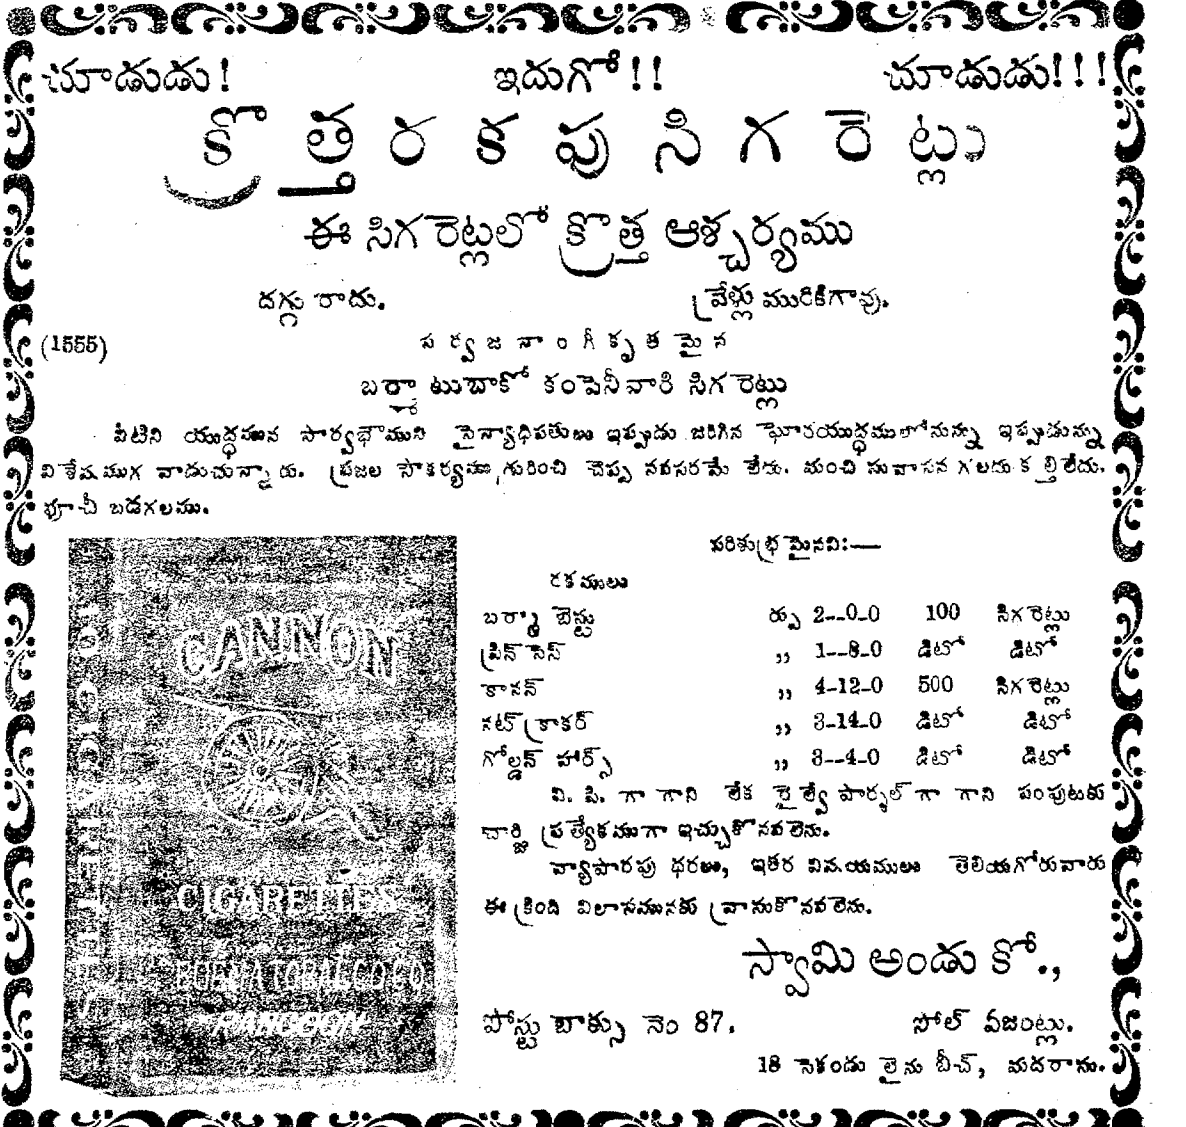 చూడుడు! ఇదుగో!! చూడుడు!!!
క్రొత్తరకపుసిగరెట్లు
ఈ సిగరెట్లలో క్రొత్త ఆశ్చర్యము
దగ్గు రాదు. వ్రేళ్లు మురికిగావు.
(1555) సర్వజనాంగీకృతమైన
బర్మా టుబాకో కంపెనీవారి సిగరెట్లు
వీటిని యుద్ధమున సార్వభౌముని సైన్యాధిపతులు ఇప్పుడు జరిగిన ఘోరయుద్ధములోనున్ను ఇప్పుడున్ను
విశేషముగ వాడుచున్నారు. ప్రజల సౌకర్యము గురించి చెప్ప నవసరమే లేదు. మంచి సువాసన గలదు కల్తిలేదు.
పూచీ బడగలము.
CANNON
CIGARETTES
BURMA TOBACCO CO
RANGOON
పరిశుభ్రమైనవి:—
రకములు
బర్మా బెస్టు ర్పు 2--0-0 100 సిగరెట్లు
ప్రిన్ సెస్ ,, 1--8-0 డిటో డిటో
కానన్ ,, 4-12-0 500 సిగరెట్లు
నట్ క్రాకర్ ,, 3-14-0 డిటో డిటో
గోల్డన్ హార్స్ ,, 3--4-0 డిటో డిటో
వి. పి. గా గాని లేక రైల్వే పార్శల్ గా గాని పంపుటకు
చార్జి ప్రత్యేకముగా ఇచ్చుకొనవలెను.
వ్యాపారపు ధరలు, ఇతర విషయములు తెలియగోరువారు
ఈ క్రింది విలాసమునకు వ్రాసుకొనవలెను.
స్వామి అండు కో.,
పోస్టు బాక్సు నెం 87. సోల్ ఏజంట్లు.
18 సెకండు లైను బీచ్, మదరాసు.